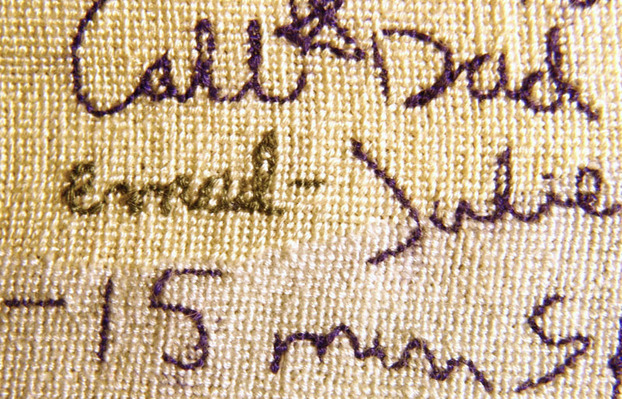 Call Dad
email - Julie
-15 min